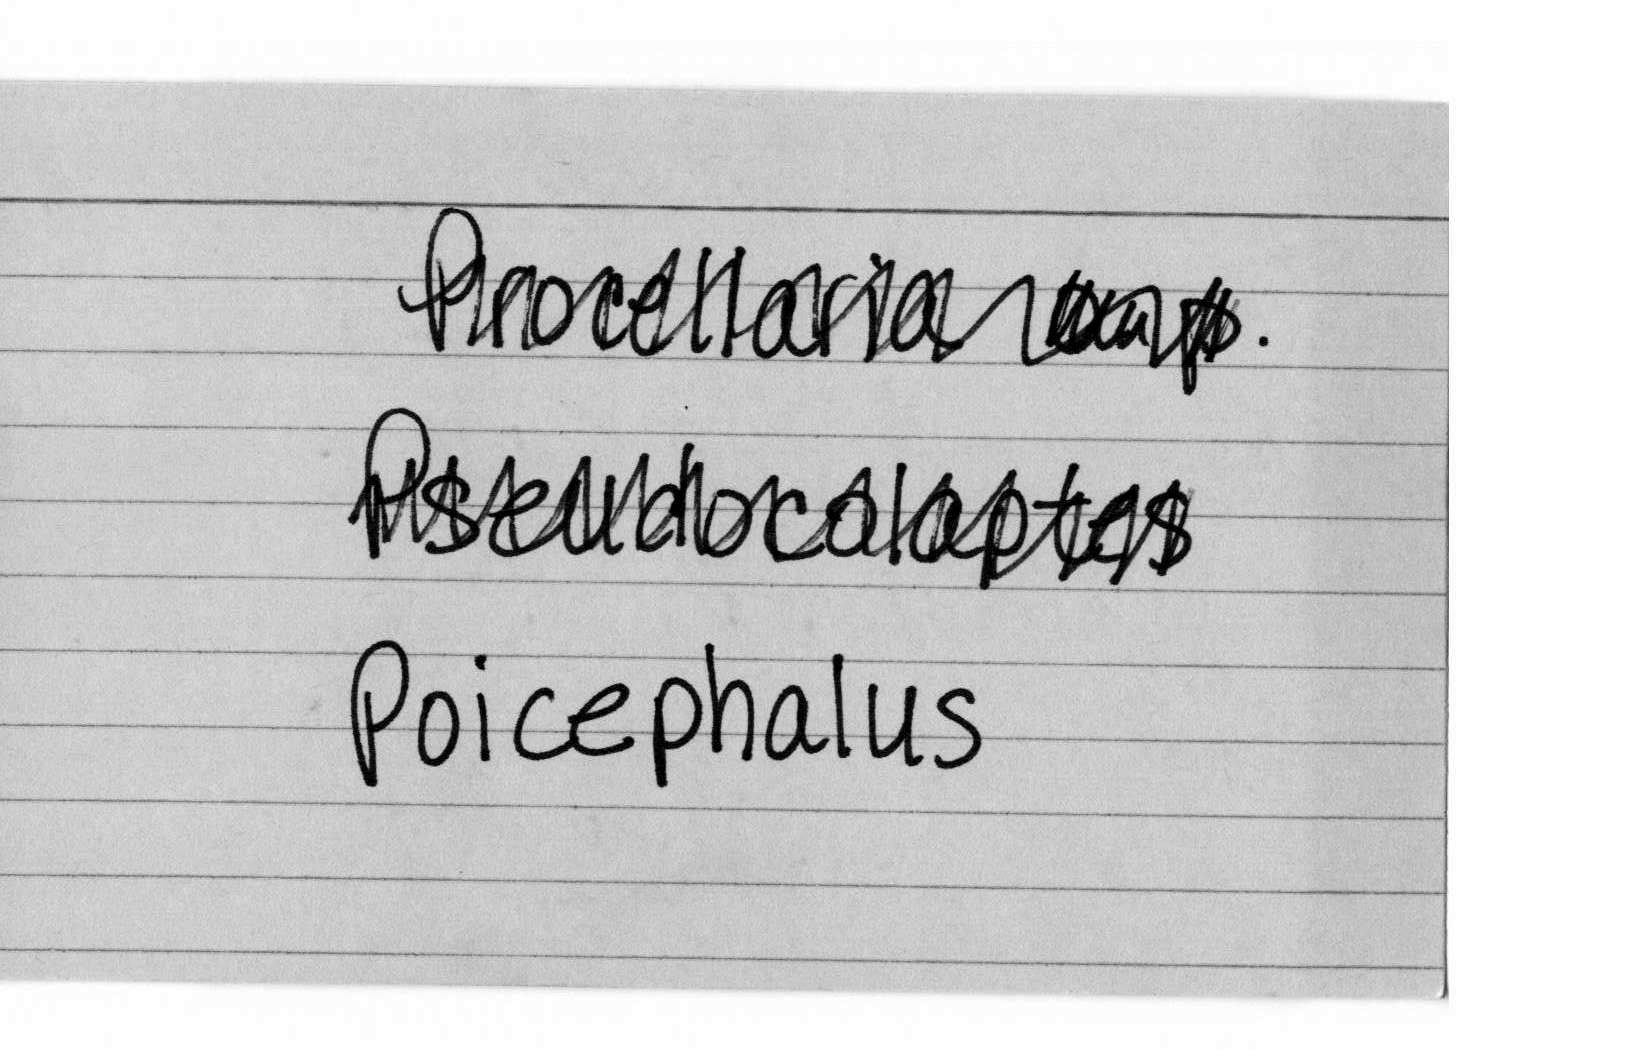 Procellaria
Pseudocolaptes
Poicephalus